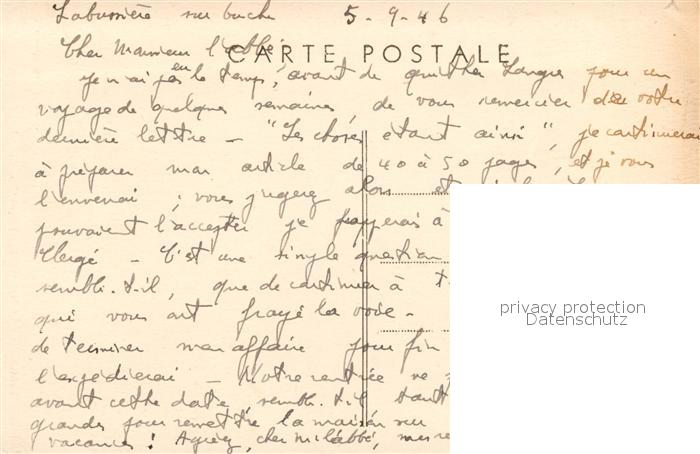 Labussière sur ouche 5-9-46
Cher Monsieur l'abbé,
CARTE POSTALE
je n'ai pas eu le temps, avant de quitter Langres pour un
voyage de quelques semaines, de vous remercier de votre
dernière lettre - "Les choses étant ainsi", je continuerai
à préparer mon article de 40 à 50 pages, et je vous
l'enverrai ; vous jugerez alors et
pouvaient l'accepter je frapperais à
Clergé - C'est une simple question
semble-t-il, que de continuer à
qui vous ont frayé la voie -
de terminer mon affaire pour fin
l'expédierai - Notre rentrée ne
avant cette date, semble-t-il tant
grandes pour remettre la maison sur
vacances ! Agréez, cher M. l'abbé, mes re
privacy protection
Datenschutz